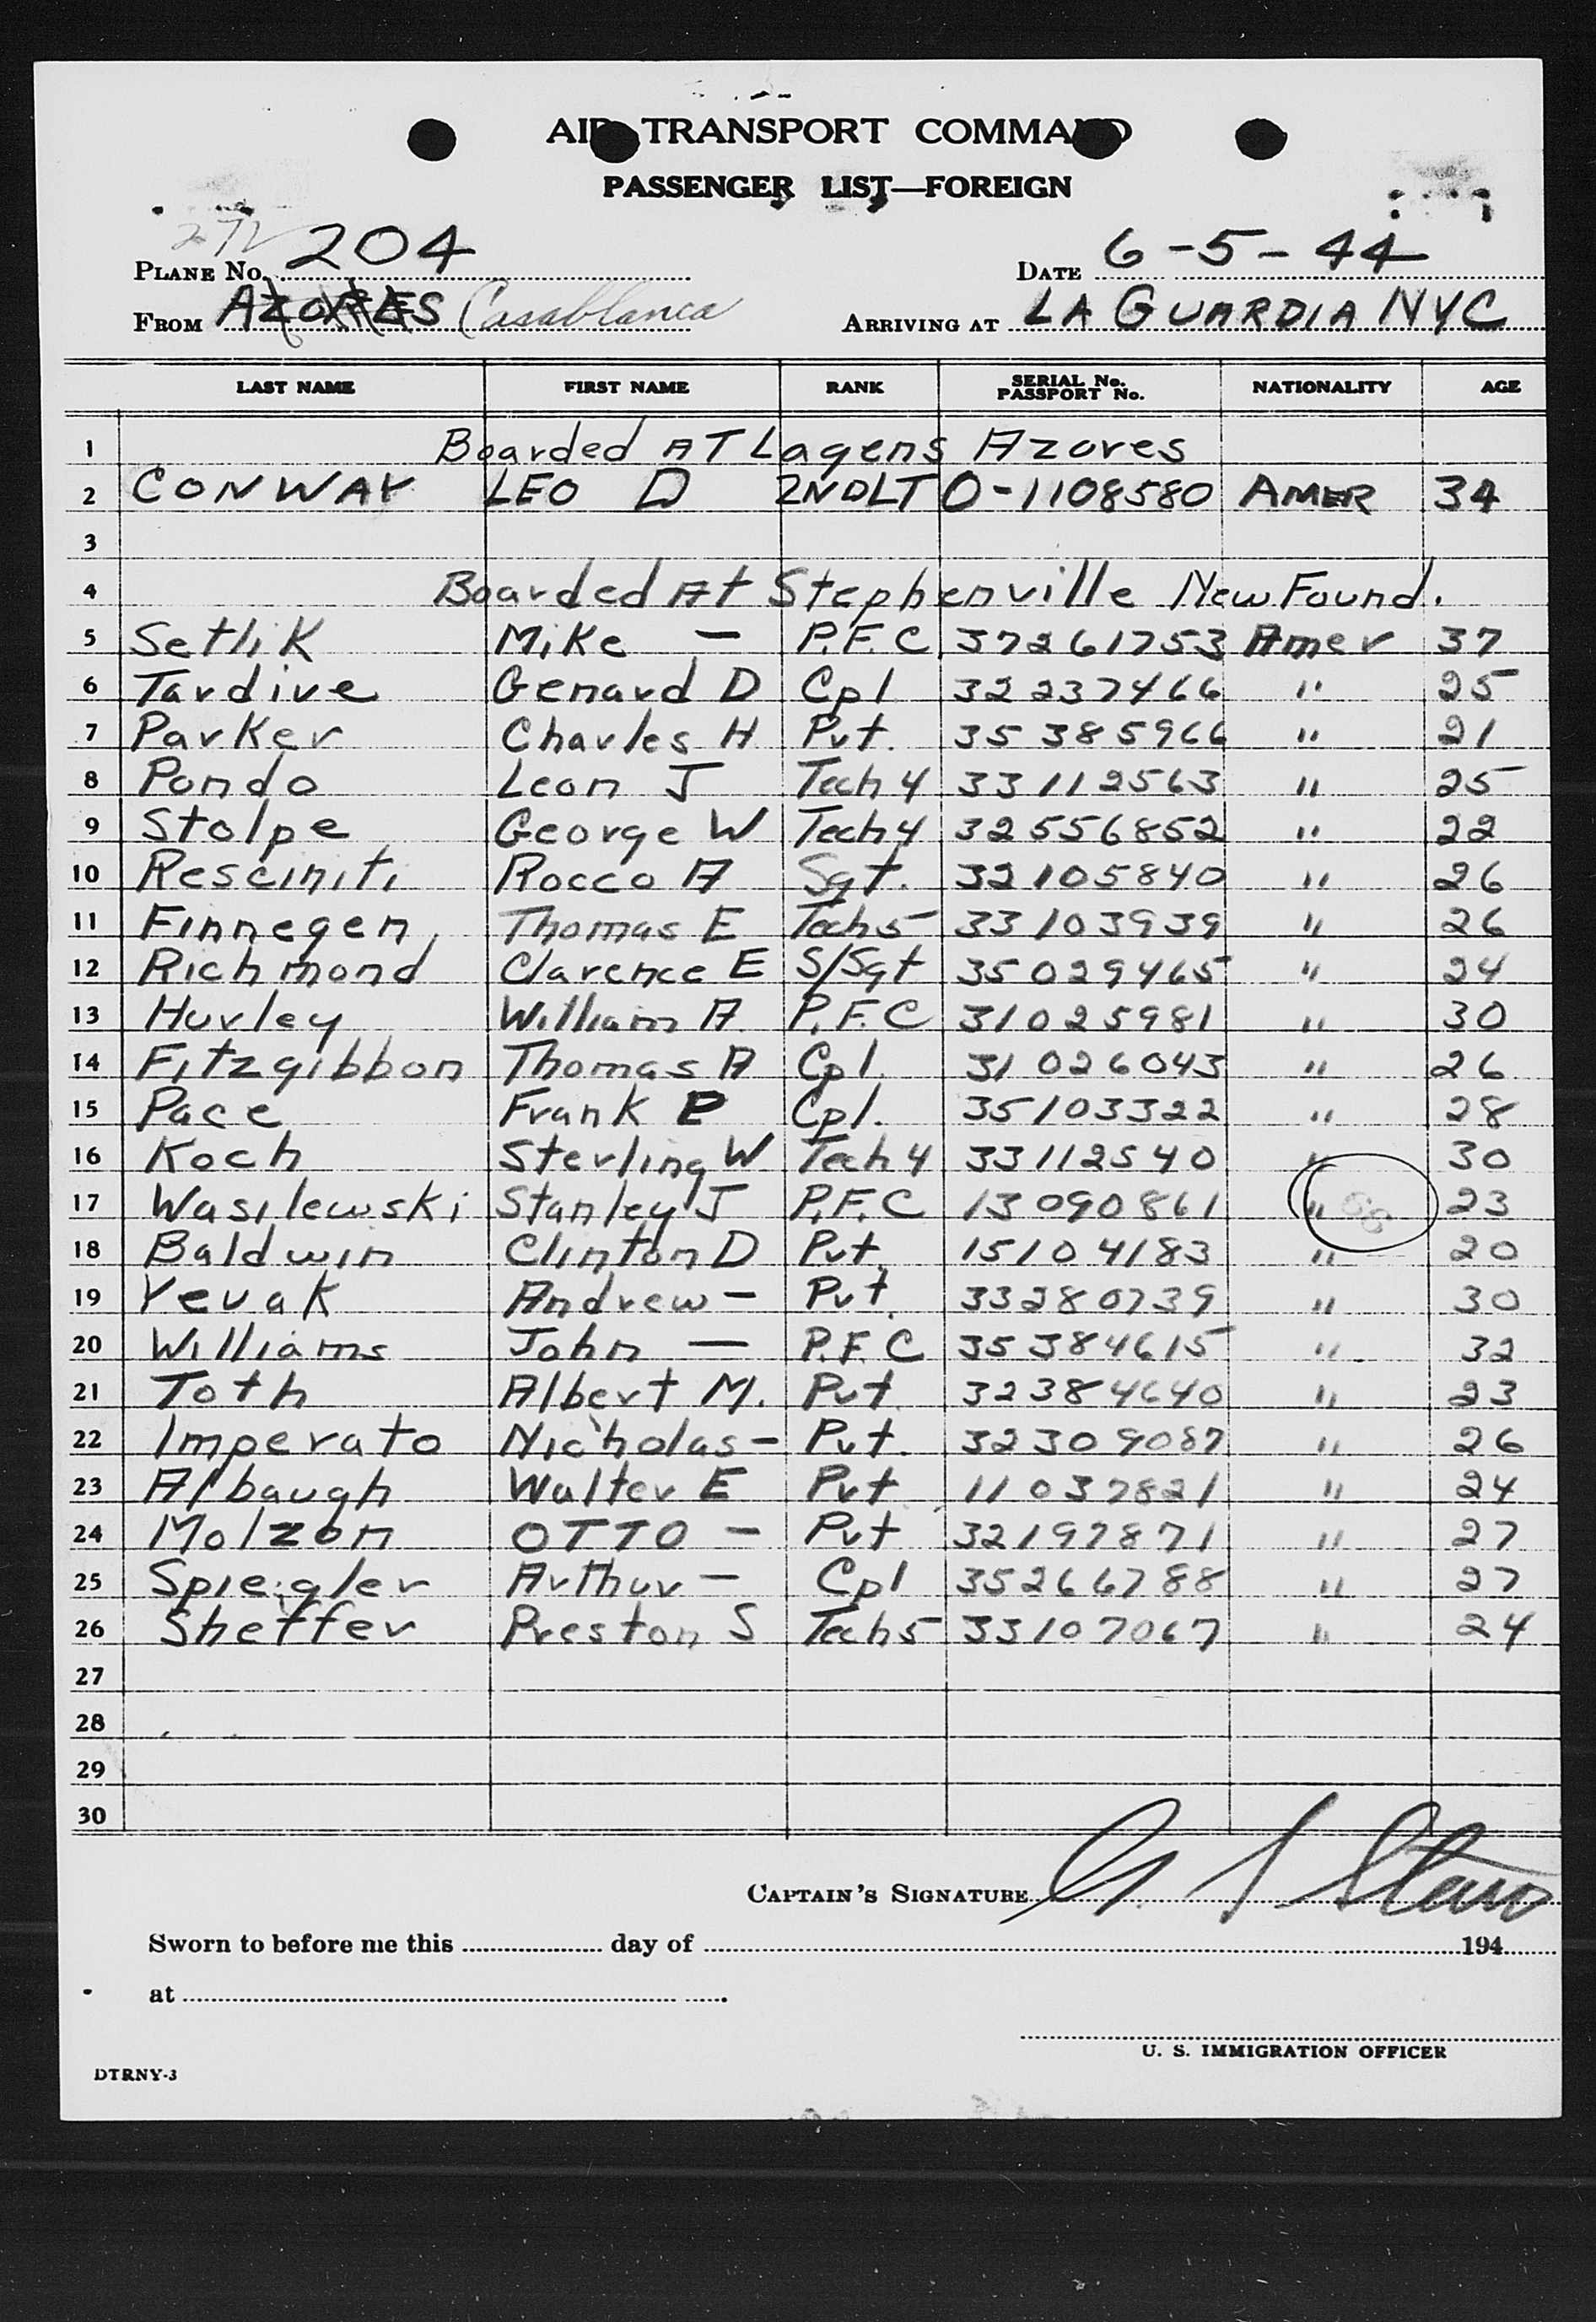 AIR TRANSPORT COMMAND
PASSENGER LIST—FOREIGN
272
PLANE No. 204 DATE 6-5-44
FROM AZORES Casablanca ARRIVING AT LA GUARDIA NYC
LAST NAME FIRST NAME RANK SERIAL No. PASSPORT No. NATIONALITY AGE
1 Boarded AT Lagens Azores
2 CONWAY LEO D 2NDLT O-1108580 AMER 34
3
4 Boarded At Stephenville New Found.
5 Setlik Mike — P.F.C. 37261753 Amer 37
6 Tardive Genard D Cpl 32237466 " 25
7 Parker Charles H Pvt. 35385966 " 21
8 Pondo Leon J Tech 4 33112563 " 25
9 Stolpe George W Tech 4 325556852 " 22
10 Resciniti Rocco A Sgt. 32105840 " 26
11 Finnegen Thomas E Tech 5 33103939 " 26
12 Richmond Clarence E S/Sgt 35029465 " 24
13 Hurley William A P.F.C 31025981 " 30
14 Fitzgibbon Thomas A Cpl. 31026043 " 26
15 Pace Frank P Cpl. 35103322 " 28
16 Koch Sterling W Tech 4 33112540 " 30
17 Wasilewski Stanley J P.F.C 13090861 " 23
18 Baldwin Clinton D Pvt. 15104183 " 20
19 Yevak Andrew — Pvt. 33280739 " 30
20 Williams John — P.F.C 35384615 " 32
21 Toth Albert M. Pvt 32384640 " 23
22 Imperato Nicholas — Pvt. 32309087 " 26
23 Albaugh Walter E Pvt 11037821 " 24
24 Molzon OTTO — Pvt 32197871 " 27
25 Spiegler Arthur — Cpl 35266788 " 27
26 Sheffer Preston S Tech 5 33107067 " 24
27
28
29
30
CAPTAIN'S SIGNATURE
Sworn to before me this day of 194
at
U. S. IMMIGRATION OFFICER
DTRNY-3